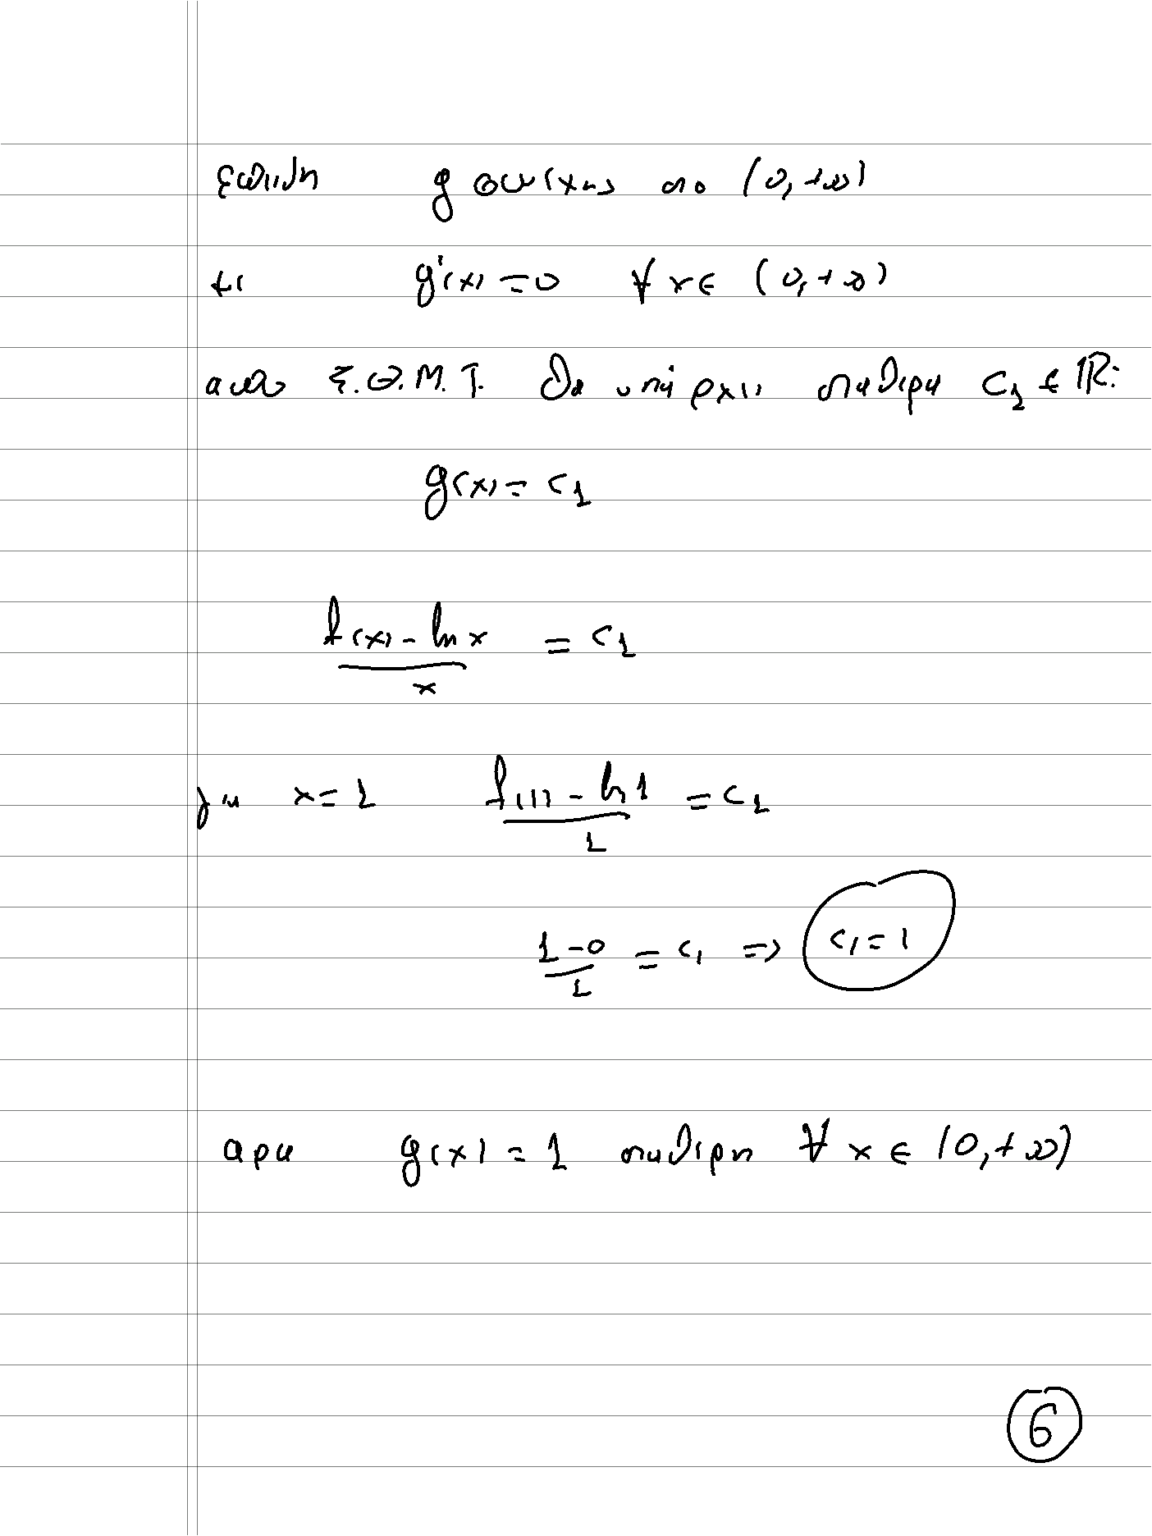 επειδή g συνεχής στο (0,+∞)
κι g'(x) = 0 ∀ x ∈ (0,+∞)
από Σ.Θ.Μ.Τ. θα υπάρχει σταθερά c₁ ∈ ℝ:
g(x) = c₁
(f(x) - ln x) / x = c₁
για x = 1 (f(1) - ln 1) / 1 = c₁
(1 - 0) / 1 = c₁ => c₁ = 1
αρα g(x) = 1 σταθερή ∀ x ∈ (0,+∞)
6